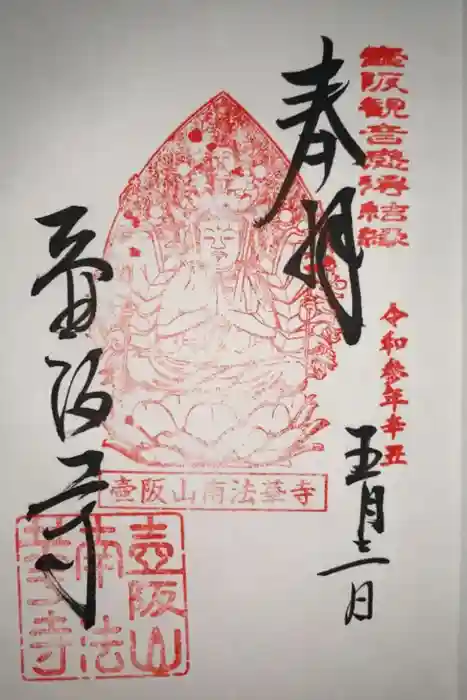 壺阪観音慶讃結縁
令和参年辛丑
奉拝
五月三日
壷阪寺
壺阪山南法華寺
壺阪山
南法
華寺